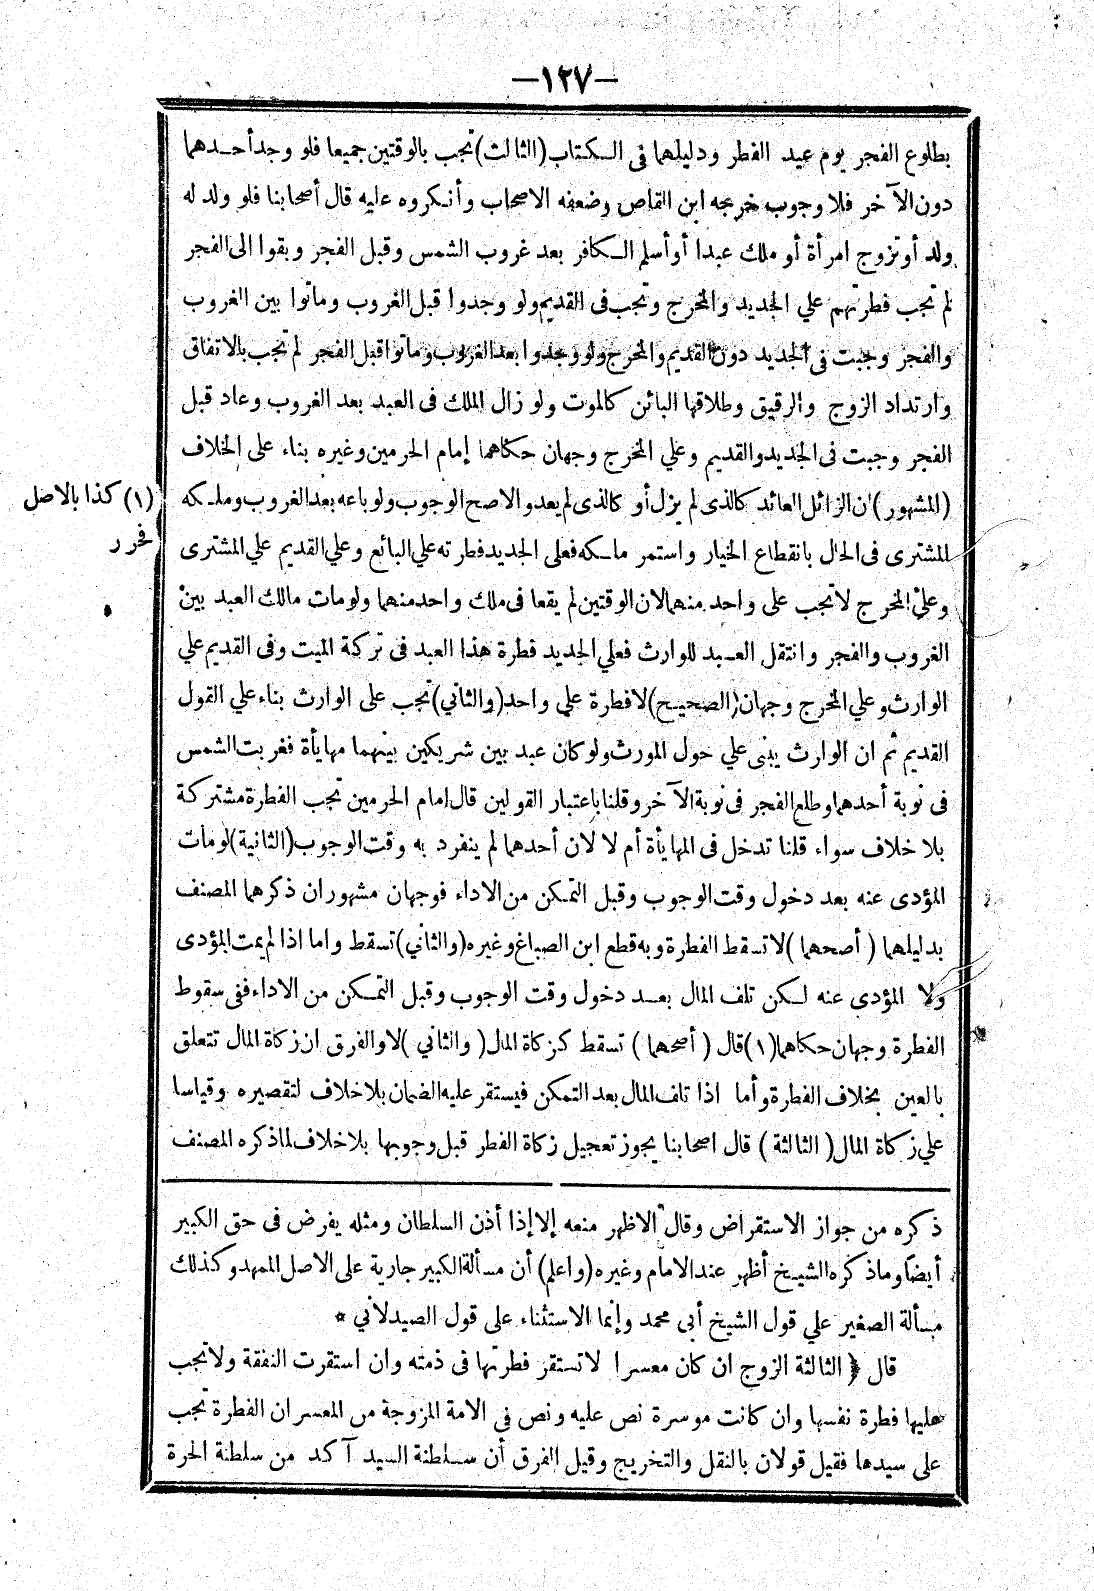 —١٢٧—
بطلوع الفجر يوم عيد الفطر ودليلهما فى الكتاب (الثالث) تجب بالوقتين جميعا فلو وجد أحدهما
دون الآخر فلا وجوب خرجه ابن القاص وضعفه الاصحاب وأنكروه عليه قال أصحابنا فلو ولد له
ولد أو تزوج امرأة أو ملك عبدا أو أسلم الكافر بعد غروب الشمس وقبل الفجر وبقوا الى الفجر
لم تجب فطرتهم علي الجديد والمخرج وتجب فى القديم ولو وجدوا قبل الغروب وماتوا بين الغروب
والفجر وجبت فى الجديد دون القديم والمخرج ولو وجدوا بعد الغروب وماتوا قبل الفجر لم تجب بالاتفاق
وارتداد الزوج والرقيق وطلاقها البائن كالموت ولو زال الملك فى العبد بعد الغروب وعاد قبل
الفجر وجبت فى الجديد والقديم وعلي المخرج وجهان حكاهما إمام الحرمين وغيره بناء على الخلاف
(المشهور) ان الزائل العائد كالذى لم يزل أو كالذى لم يعد والاصح الوجوب ولو باعه بعد الغروب وملكه
(١) كذا بالاصل
فحرر
المشترى فى الحال بانقطاع الخيار واستمر ملكه فعلى الجديد فطرته علي البائع وعلي القديم علي المشترى
وعلي المخرج لا تجب على واحد منهما لان الوقتين لم يقعا فى ملك واحد منهما ولو مات مالك العبد بين
الغروب والفجر وانتقل العبد للوارث فعلي الجديد فطرة هذا العبد فى تركة الميت وفى القديم علي
الوارث وعلي المخرج وجهان (الصحيح) لا فطرة علي واحد (والثاني) تجب على الوارث بناء علي القول
القديم ثم ان الوارث يبنى علي حول المورث ولو كان عبد بين شريكين بينهما مهايأة فغربت الشمس
فى نوبة أحدهما وطلع الفجر فى نوبة الآخر وقلنا باعتبار القولين قال امام الحرمين تجب الفطرة مشتركة
بلا خلاف سواء قلنا تدخل فى المهايأة أم لا لان أحدهما لم ينفرد به وقت الوجوب (الثانية) لو مات
المؤدى عنه بعد دخول وقت الوجوب وقبل التمكن من الاداء فوجهان مشهوران ذكرهما المصنف
بدليلهما (أصحهما) لا تسقط الفطرة وبه قطع ابن الصباغ وغيره (والثاني) تسقط واما اذا لم يمت المؤدى
ولا المؤدى عنه لكن تلف المال بعد دخول وقت الوجوب وقبل التمكن من الاداء ففى سقوط
الفطرة وجهان حكاهما (١) قال (أصحهما) تسقط كزكاة المال (والثاني) لا والفرق ان زكاة المال تتعلق
بالعين بخلاف الفطرة وأما اذا تلف المال بعد التمكن فيستقر عليه الضمان بلا خلاف لتقصيره وقياسا
علي زكاة المال (الثالثة) قال اصحابنا يجوز تعجيل زكاة الفطر قبل وجوبها بلا خلاف لما ذكره المصنف
ذكره من جواز الاستقراض وقال الاظهر منعه إلا إذا أذن السلطان ومثله يفرض فى حق الكبير
أيضا وماذكره الشيخ أظهر عند الامام وغيره (واعلم) أن مسألة الكبير جارية على الاصل الممهد وكذلك
مسألة الصغير علي قول الشيخ أبى محمد وإنما الاستثناء على قول الصيدلاني *
قال ﴿ الثالثة الزوج ان كان معسرا لا تستقر فطرتها فى ذمته وان استقرت النفقة ولا تجب
عليها فطرة نفسها وان كانت موسرة نص عليه ونص فى الامة المزوجة من المعسر ان الفطرة تجب
على سيدها فقيل قولان بالنقل والتخريج وقيل الفرق أن سلطنة السيد آكد من سلطنة الحرة